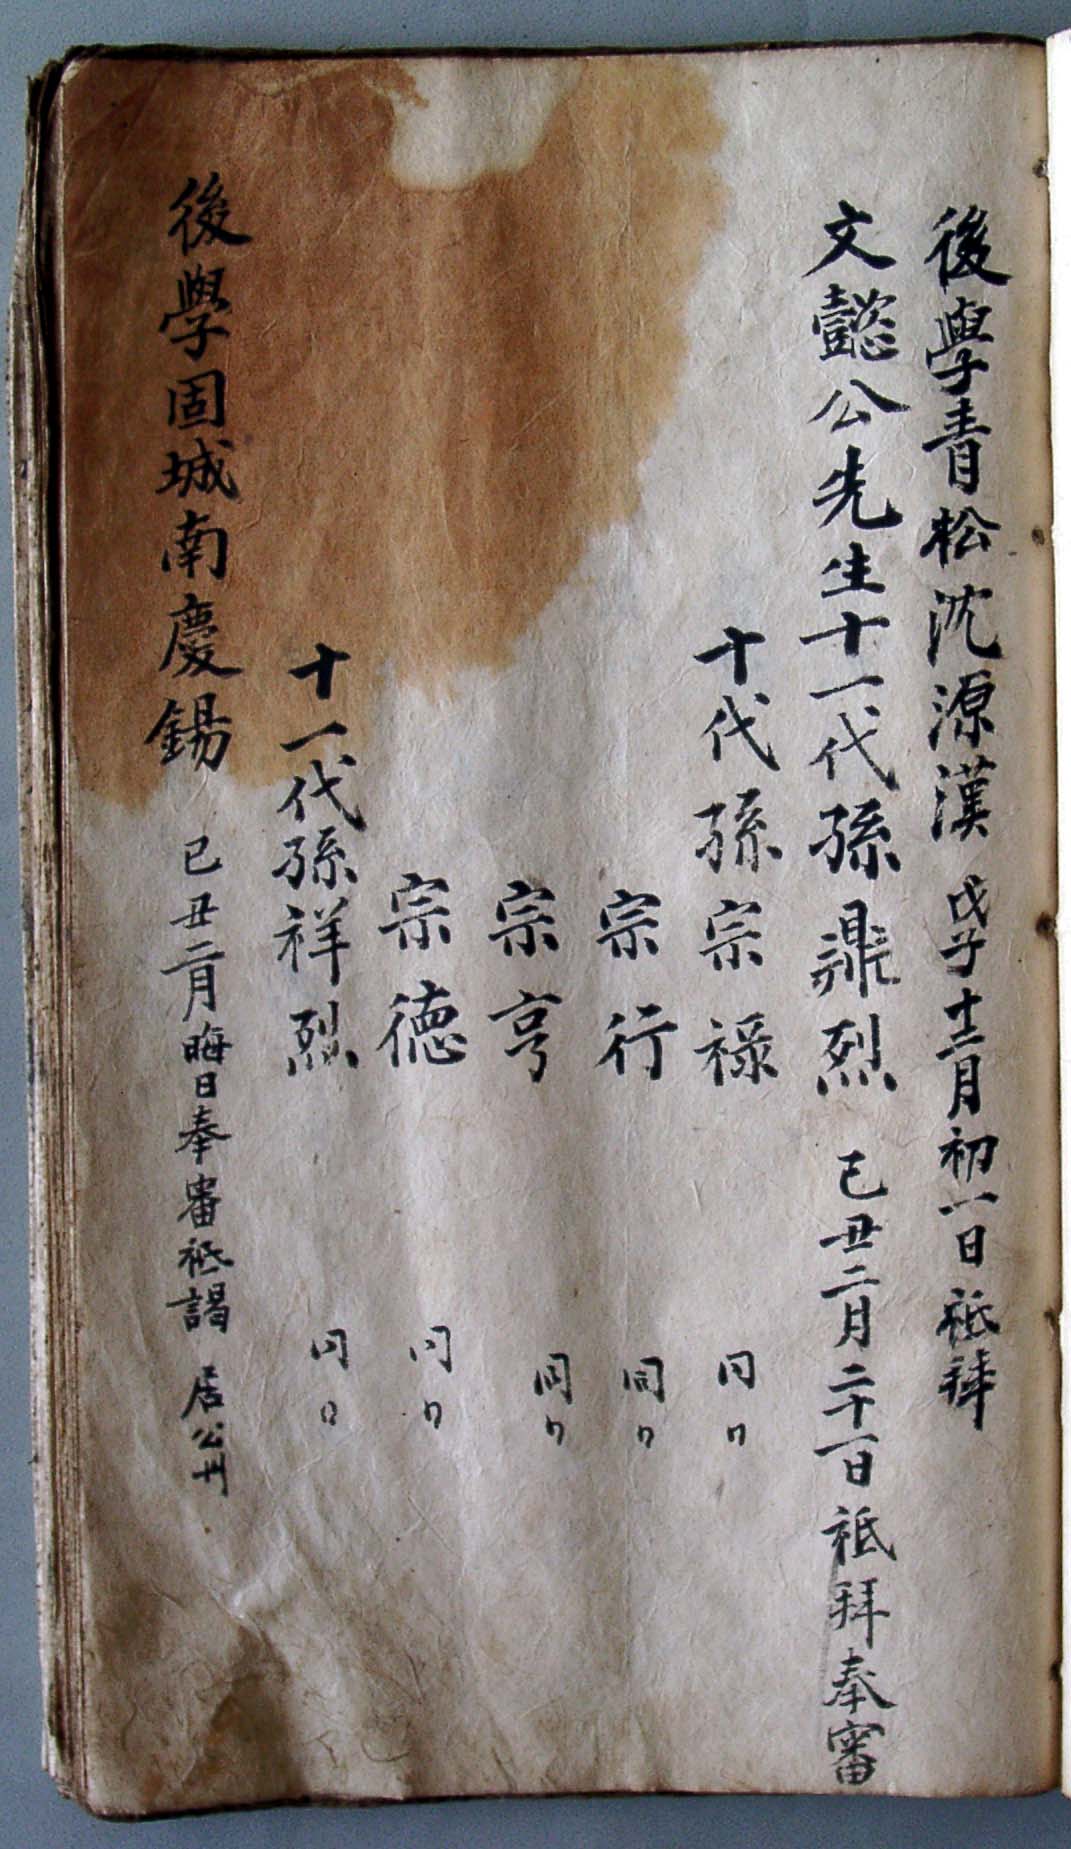 後學青松沈源漢 戊子十二月初一日祗拜
文懿公先生十一代孫鼎烈 己丑二月二十一日祗拜奉審
十代孫宗祿 同日
宗行 同日
宗亨 同日
宗德 同日
十一代孫祥烈 同日
後學固城南慶錫 己丑二月晦日奉審祗謁 居公州